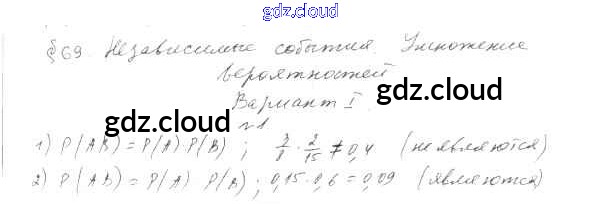 gdz.cloud
§69. Независимые события. Умножение
вероятностей
Вариант I.
gdz.cloud
gdz.cloud
№1.
1) P(AB) = P(A)·P(B) ; 3/8 · 2/15 ≠ 0,4 (не являются)
2) P(AB) = P(A) P(B) ; 0,15·0,6 = 0,09 (являются)
gdz.cloud